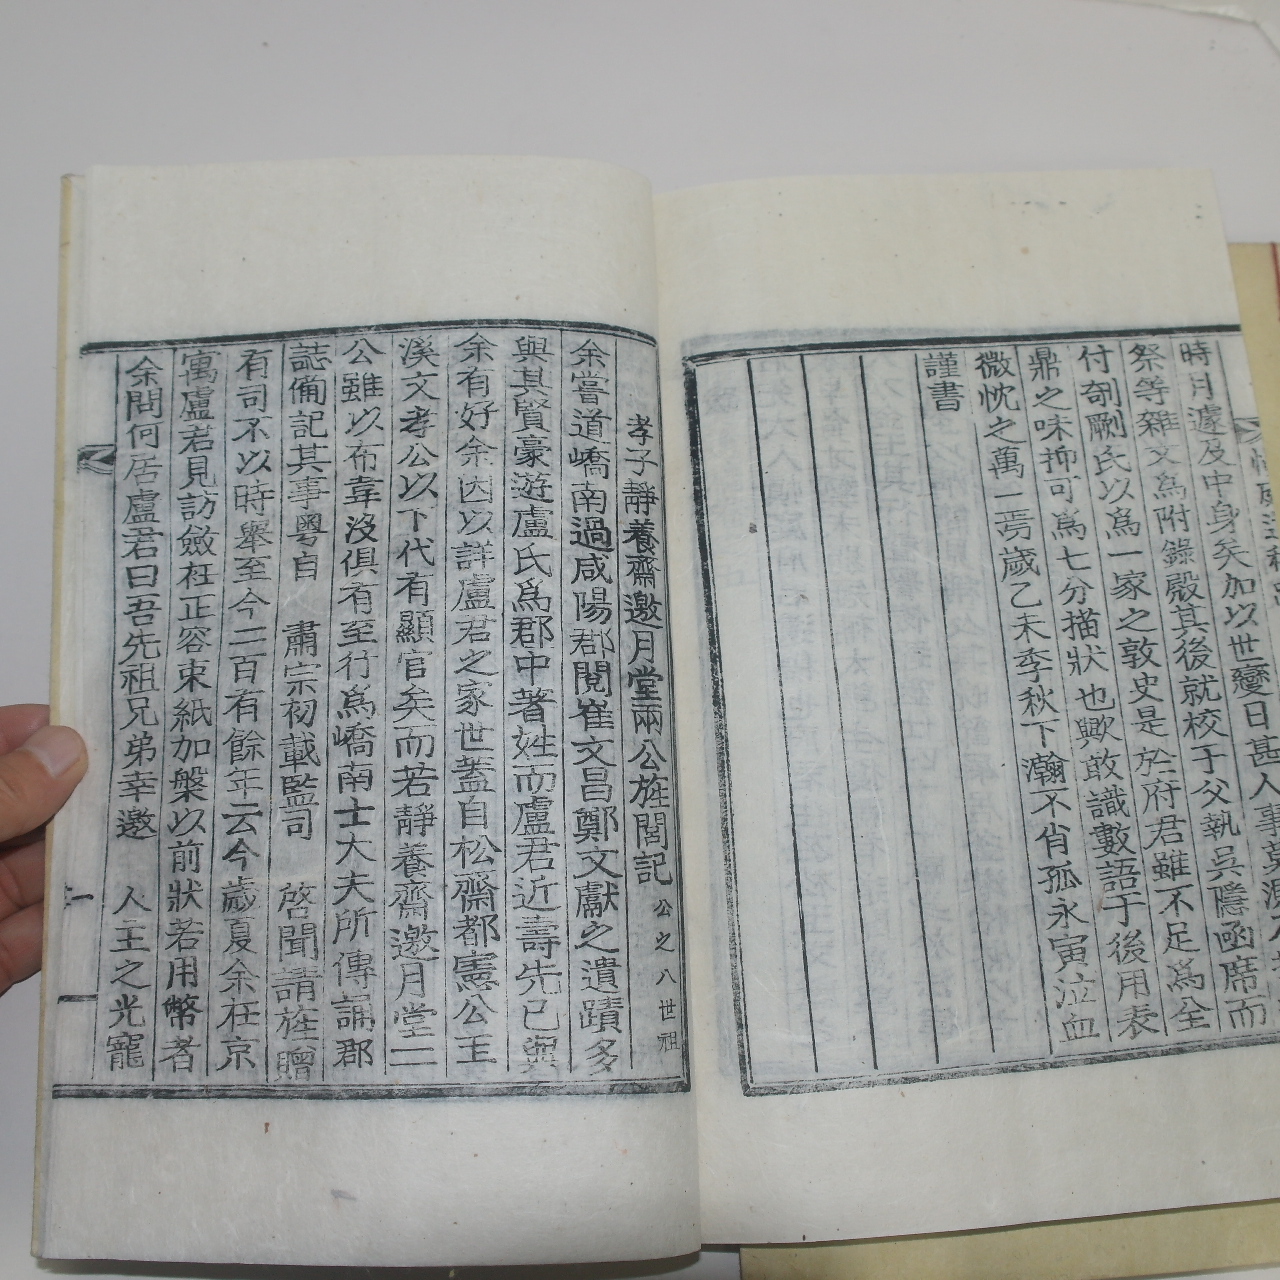 時月遽及中身矣加以世變日甚人事莫
祭等雜文爲附錄殿其後就校于父執吳隱凾席而
付剞劂氏以爲一家之敦史是於府君雖不足爲全
鼎之味抑可爲七分描狀也歟敢識數語于後用表
微忱之萬一焉歲乙未季秋下瀚不肖孤永寅泣血
謹書
孝子靜養齋邀月堂兩公旌閭記 公之八世祖
余嘗道嶠南過咸陽郡閱崔文昌鄭文獻之遺蹟多
與其賢豪遊盧氏爲郡中著姓而盧君近壽先已與
余有好余因以詳盧君之家世蓋自松齋都憲公玉
溪文孝公以下代有顯官矣而若靜養齋邀月堂二
公雖以布韋沒俱有至行爲嶠南士大夫所傳誦郡
誌備記其事粤自 肅宗初載監司 啓聞請旌贈
有司不以時舉至今二百有餘年云今歲夏余在京
寓盧君見訪斂衽正容束紙加槃以前狀若用幣者
余問何居盧君曰吾先祖兄弟幸邀 人主之光寵